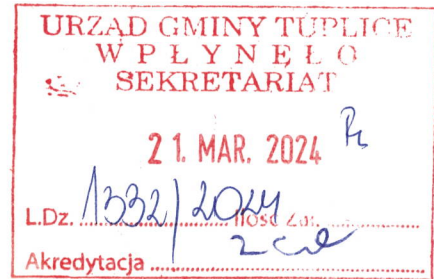 URZĄD GMINY TUPLICE
WPŁYNĘŁO
SEKRETARIAT
21. MAR. 2024
L.Dz. 1332/2024 Ilość Zał.
Akredytacja